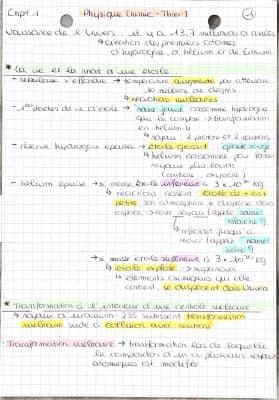 Chpt 1
Physique Chimie - Thm 1
1
Naissance de l'Univers : il y a 13,7 milliards d'années
↳ création des premiers atomes
d'hydrogène, d'hélium et de lithium
* La vie et la mort d'une étoile
- nébuleuse s'effondre → température augmente pour atteindre
10 millions de degrés
↳ réaction nucléaires
étoile → naine jaune consomme hydrogène
qui la compose → transformation
en hélium-4
↳ noyau : 2 protons et 2 neutrons
- réserve hydrogène épuisée → étoile grossit géante rouge
↳ hélium consommé pour former
noyaux plus lourds
(carbone, oxygène)
- hélium épuisé → si masse étoile inférieure à 3 × 10 kg
↳ réactions cessent étoile de + en +
petite, son atmosphère se disperse dans
espace → reste noyau (appelé naine
blanche)
↳ refroidit jusqu'à
mourir (appelé naine
noire)
→ si masse étoile supérieure à 3 × 10 kg
↳ étoile explose → supernova
↳ éléments chimiques qu'elle
contient, se dispersent dans Univers
* Transformation à l'intérieur d'une centrale nucléaire
↳ noyaux d'uranium-235 subissent transformation
nucléaire suite à collision avec neutrons
- Transformation nucléaire → transformation lors de laquelle
la composition d'un ou plusieurs noyaux
atomiques est modifiée.